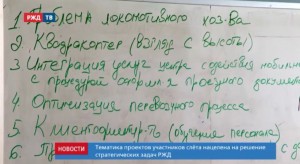 РЖД ТВ
1 Проблема локомотивного хоз-ва
2. Квадрокоптер (взгляд с высоты)
3 Интеграция услуг центра содействия мобильн
с процедурой оформл-я проездного документа
4 Оптимизация перевозочного процесса
5 Клиентоориентир-ть (обучение персонала)
6.
НОВОСТИ
Тематика проектов участников слёта нацелена на решение
стратегических задач РЖД